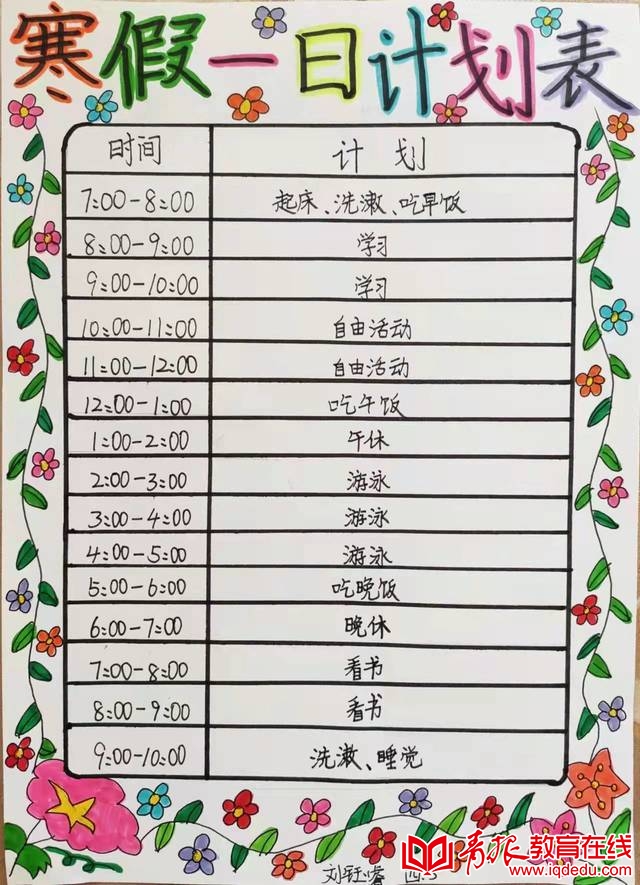 寒假一日计划表
时间 计划
7:00-8:00 起床、洗漱、吃早饭
8:00-9:00 学习
9:00-10:00 学习
10:00-11:00 自由活动
11:00-12:00 自由活动
12:00-1:00 吃午饭
1:00-2:00 午休
2:00-3:00 游泳
3:00-4:00 游泳
4:00-5:00 游泳
5:00-6:00 吃晚饭
6:00-7:00 晚休
7:00-8:00 看书
8:00-9:00 看书
9:00-10:00 洗漱、睡觉
青报教育在线
www.iqdedu.com
刘钰睿